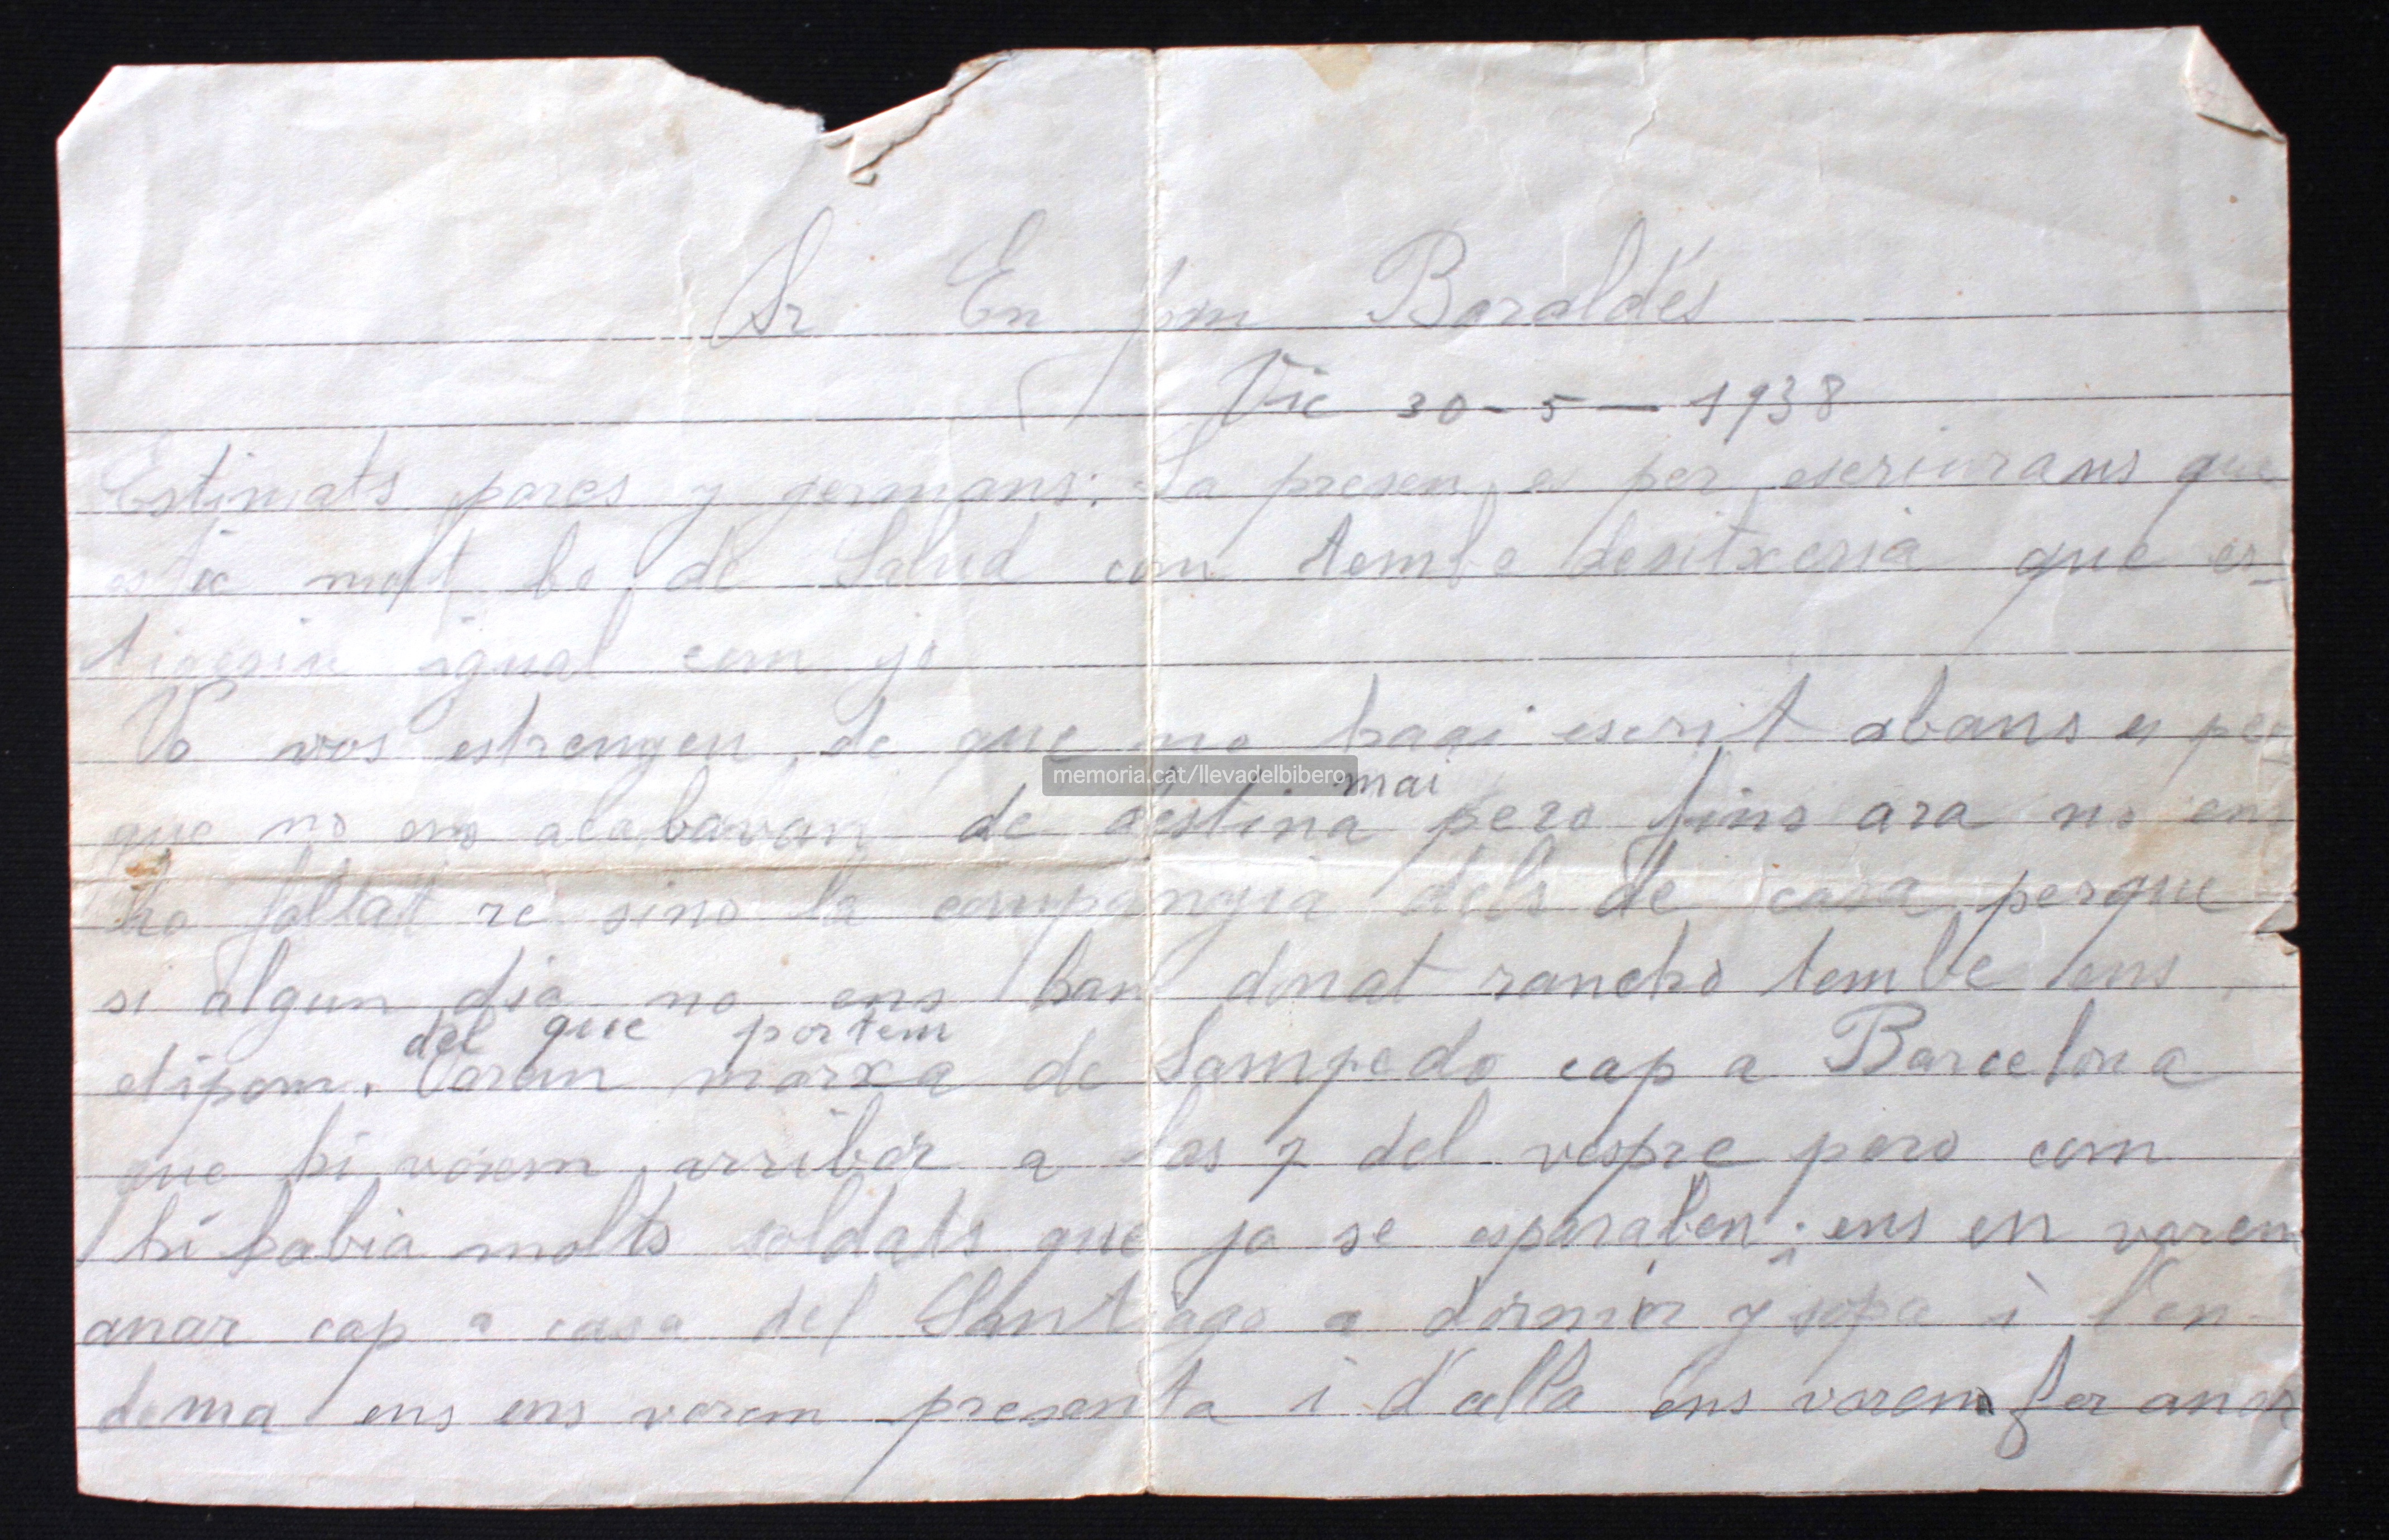 Sr En Jom Baraldés
Vic 30-5-1938
Estimats pares y germans: La presen es per escriurans que
estic molt be de Salud com tembe desitxeria que es-
tigesin igual com jo
No vos estrengeu de que no hagi escrit abans es per
memoria.cat/llevadelbibero
mai
que no ens acabavan de destina pero fins ara no em
ha faltat re sino la compangia dels de casa perque
si algun dia no ens han donat rancho tembe ens
del que portem
atipom. Varem marxa de Sampedo cap a Barcelona
que hi varem arribar a las 7 del vespre pero com
hi habia molts soldats que ja se esperaben; ens en varem
anar cap a casa del Santiago a dormir y sopa i l'en-
dema ens ens varem presenta i d'alla ens varem fer anar